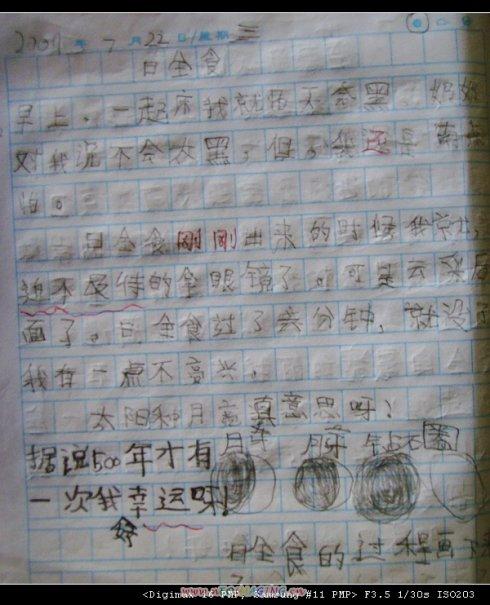 2009年7月22日星期三
日全食
早上,一起床我就怕天会黑,妈妈
对我说不会太黑,但是我还是
怕。
日全食刚刚出来的时候我就
迫不及待的拿眼镜了,可是云
面了。日全食过了六分钟,就没了
我有一点不高兴。
太阳和月亮真意思呀!
据说500年才有
一次我幸运呀!
好
月牙 月牙 钻石圈
日全食的过程画下来
<Digimax i6 PMP, Samsung #11 PMP> F3.5 1/30s ISO203